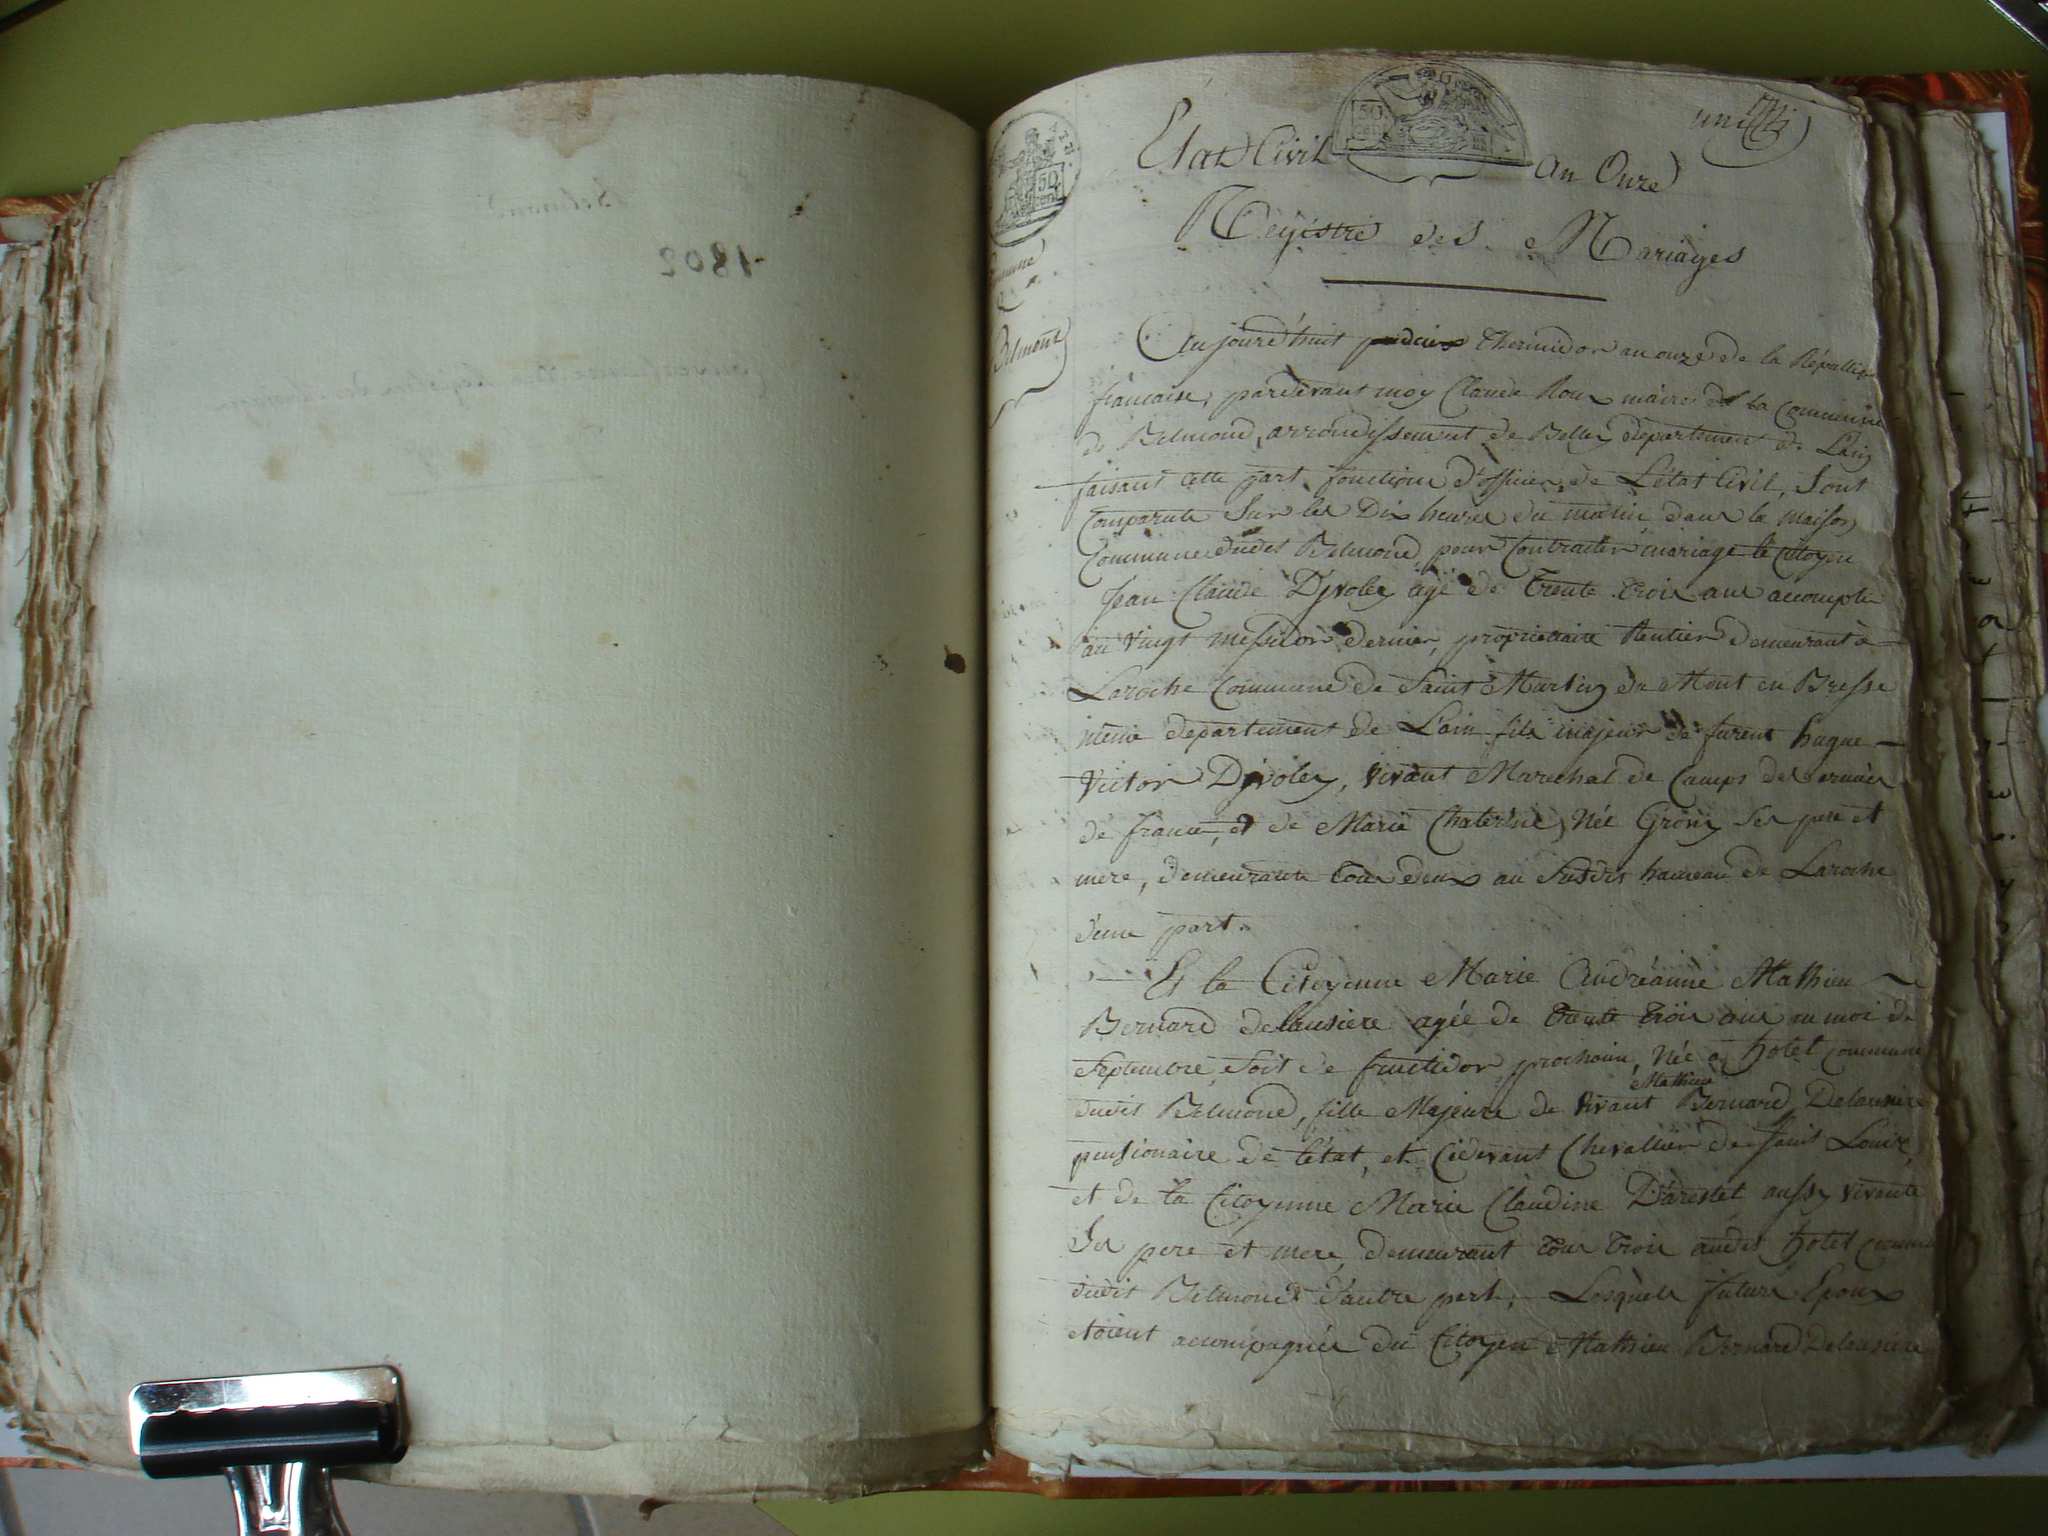 1802
50
cent
Commune
Belmont
Etat Civil
50
Cent
An Onze
Registre des Mariages
Aujourd'huit Thermidor an onze de la Répub
francaise, pardevant moy Claude Roux maire de la Commune
de Belmond, arrondissement de Belley département de Lain
faisant cette part fonction d'officier de L'état Civil, Sont
Comparute Sur les Dix heures du matin dans la maison
Commune dudit Belmond pour Contracter mariage le Citoyen
Jean Claude Dyvoley agé de Trente Trois ans accomplis
au vingt messidor dernier, proprietaire Rentier demeurant à
Laroche Commune de Saint Martin du Mont en Bresse
même departement de Lain fils majeur de furent hugue
Victor Dyvoley, vivant Marechal de Camps des armées
de france, et de Marie Chaterine Née Ses pere et
mere, demeurants tous deux au Susdit hameau de Laroche
d'une part.
Et la Citoyenne Marie Andréanne Mathieu
Bernard delausiere agée de Trente Trois ans au moi de
Septembre, Soit de fructidor prochain, Née a hotel commune
dudit Belmond, fille Majeure de vivant Mathieu Bernard Delausiere
pensionaire de l'état, et Cidevant Chevallier de Saint Louix,
et de la Citoyenne Marie Claudine Darestel aussy vivante
Ses pere et mere, demeurant Tous Trois audit hotel commune
dudit Belmond d'autre part; Lesquels futurs Epoux
etoient accompagnés du Citoyen Mathieu Bernard Delausiere